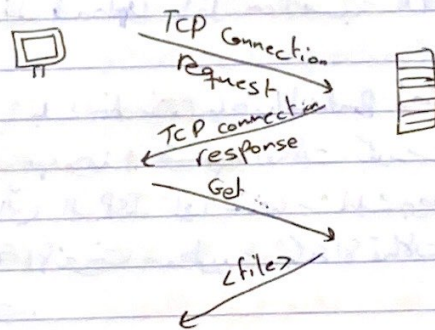 TCP Connection
request
TCP connection
response
Get ...
<file>